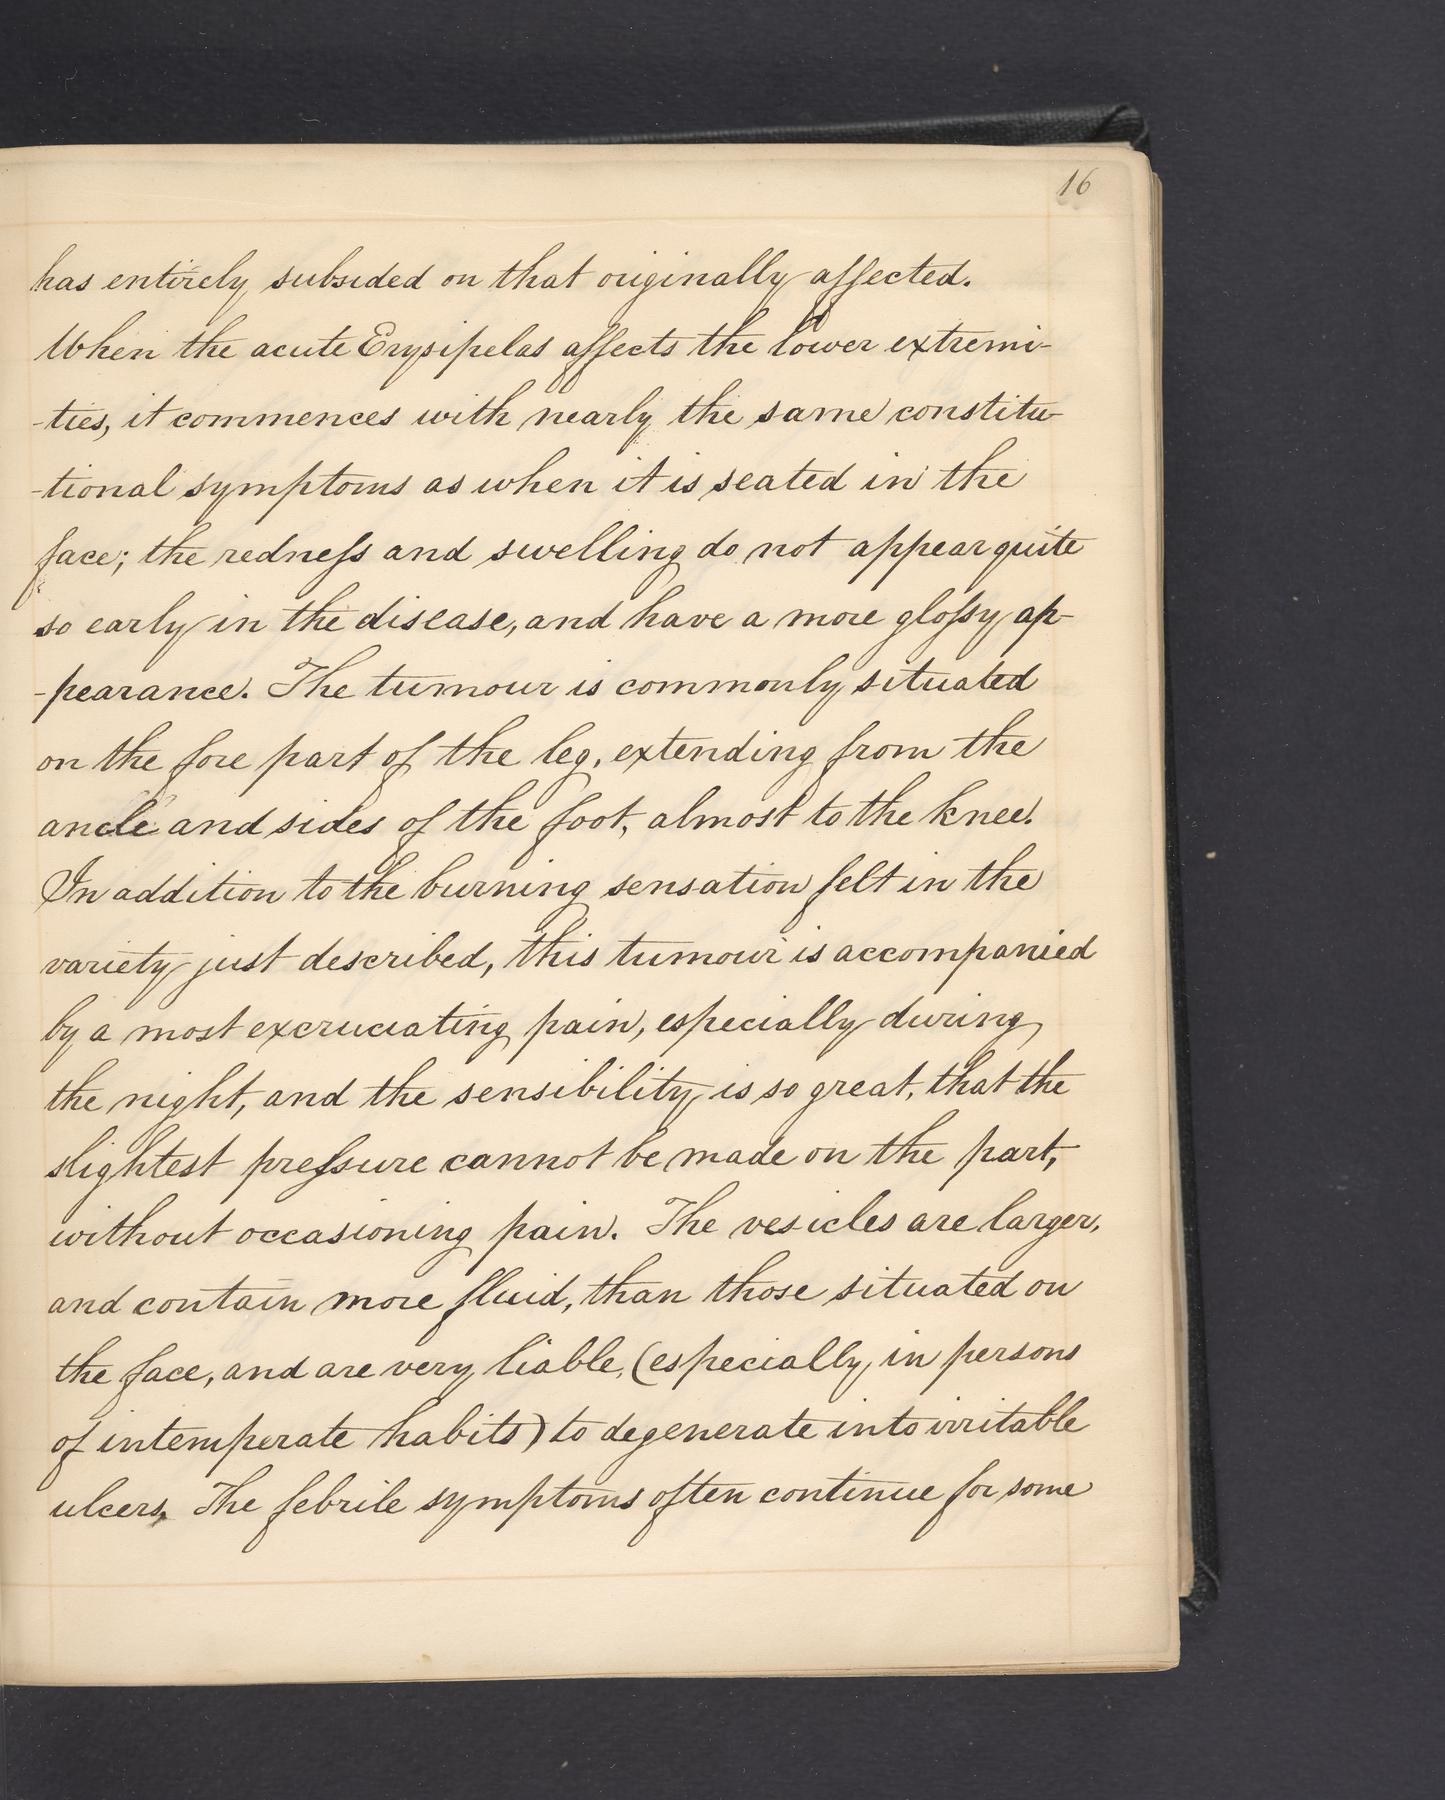 16
has entirely subsided on that originally affected.
When the acute Erysipelas affects the lower extremi-
-ties, it commences with nearly the same constitu-
-tional symptoms as when it is seated in the
face; the redneſs and swelling do not appear quite
so early in the disease, and have a more gloſsy ap-
-pearance. The tumour is commonly situated
on the fore part of the leg, extending from the
ancle and sides of the foot, almost to the knee.
In addition to the burning sensation felt in the
variety just described, this tumour is accompanied
by a most excruciating pain, especially during
the night, and the sensibility is so great, that the
slightest preſsure cannot be made on the part,
without occasioning pain. The vesicles are larger,
and contain more fluid, than those situated on
the face, and are very liable, (especially in persons
of intemperate habits) to degenerate into irritable
ulcers. The febrile symptoms often continue for some